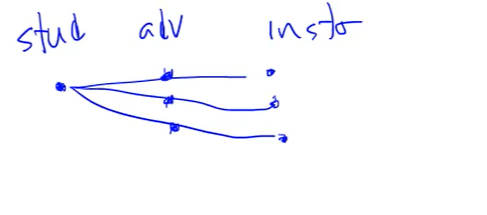 stud adv instr